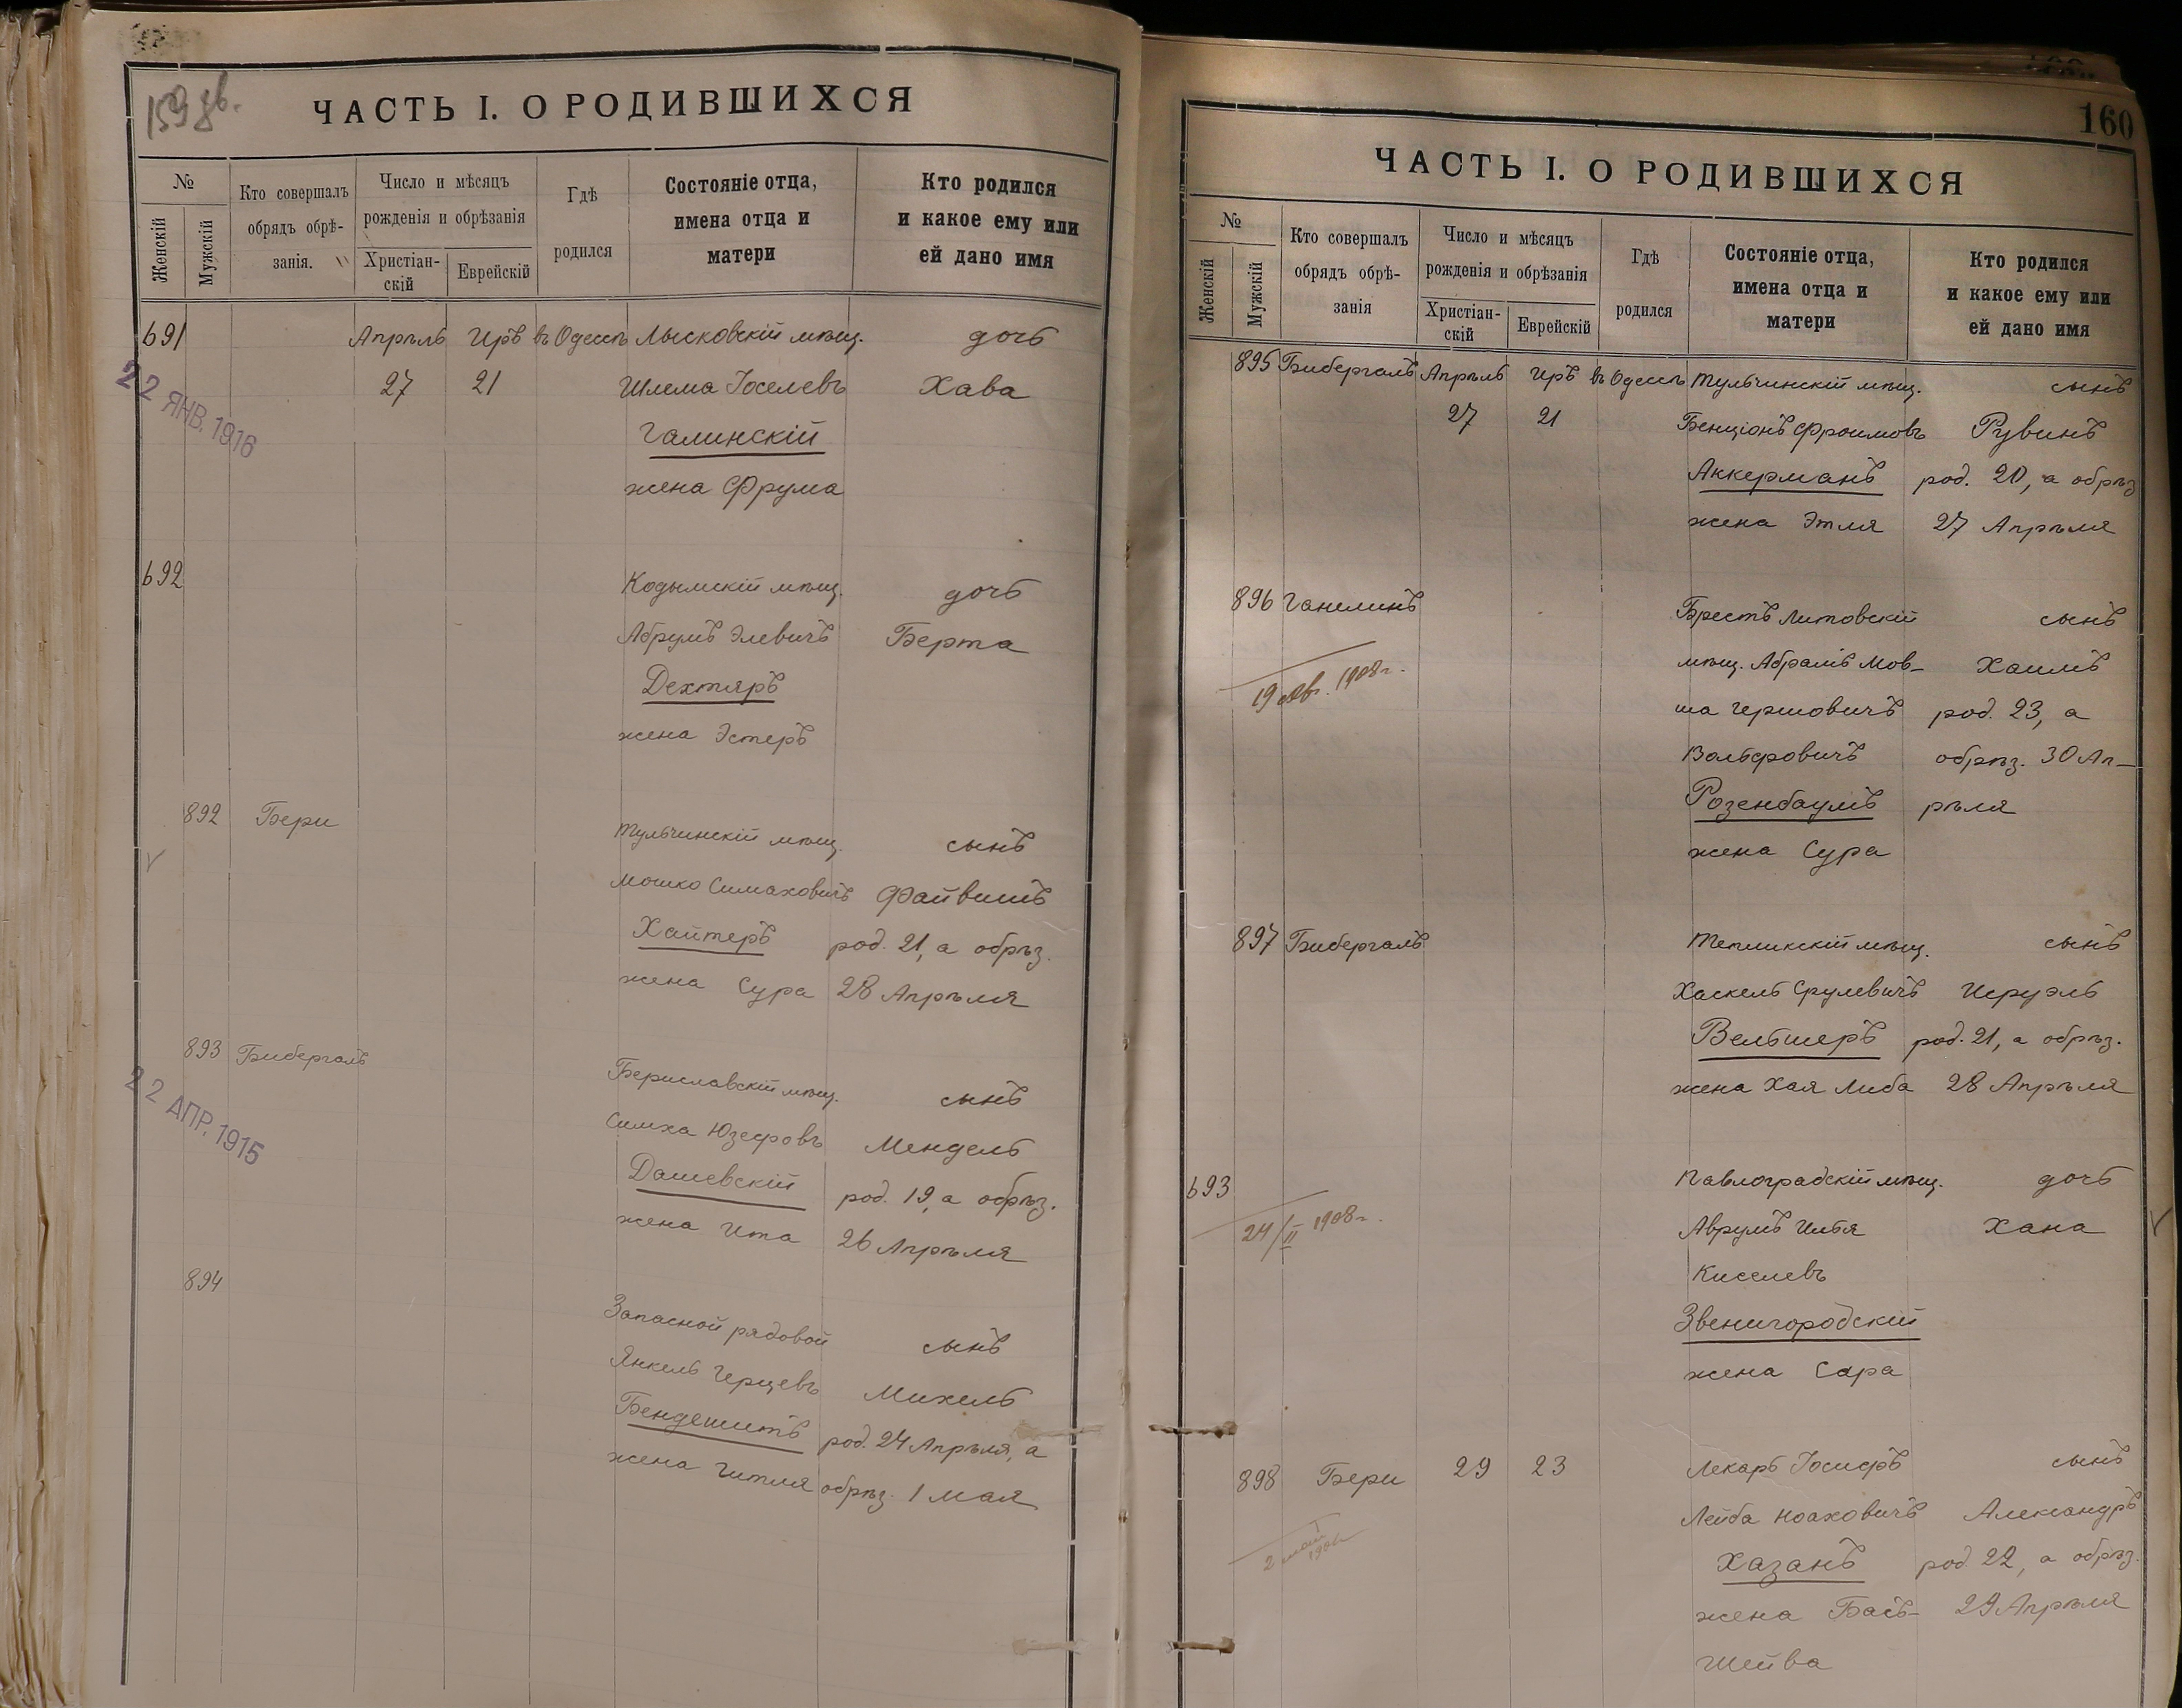 159 зв.
ЧАСТЬ I. О РОДИВШИХСЯ
№
Женскій
Мужскій
Кто совершалъ обрядъ обрѣ-занія.
Число и мѣсяцъ рожденія и обрѣзанія
Христіан-скій
Еврейскій
Гдѣ родился
Состояніе отца, имена отца и матери
Кто родился и какое ему или ей дано имя
691 Апрѣль Иръ въ Одессѣ Лысковскій мѣщ. дочь
27 21 Шлема Іоселевъ Хава
22 ЯНВ. 1916
Галинскій
жена Фрума
692 Кодымскій мѣщ. дочь
Абрумъ Элевичъ Берта
Дехтяръ
жена Эстеръ
892 Бери Тульчинскій мѣщ. сынъ
Мошко Симаховичъ Файвишъ
Хаитеръ род. 21, а обрѣз.
жена Сура 28 Апрѣля
893 Бибергалъ Бериславскій мѣщ. сынъ
22 АПР. 1915
Симха Юзефовъ Мендель
Дашевскій род. 19, а обрѣз.
жена Ита 26 Апрѣля
894 Запасной рядовой сынъ
Янкель Герцевъ Михель
Бендешитъ род. 24 Апрѣля, а
жена Гитля обрѣз. 1 мая
160
ЧАСТЬ I. О РОДИВШИХСЯ
№
Женскій
Мужскій
Кто совершалъ обрядъ обрѣ-занія
Число и мѣсяцъ рожденія и обрѣзанія
Христіан-скій
Еврейскій
Гдѣ родился
Состояніе отца, имена отца и матери
Кто родился и какое ему или ей дано имя
895 Бибергалъ Апрѣль Иръ въ Одессѣ Тульчинскій мѣщ. сынъ
27 21 Бенціонъ Фроимовъ Рувинъ
Аккерманъ род. 20, а обрѣз
жена Этля 27 Апрѣля
896 Ганелинъ Брестъ Литовскій сынъ
19 авг. 1908 г.
мѣщ. Абрамъ Мов- Хаимъ
ша Гершовичъ род. 23, а
Вольфовичъ обрѣз. 30 Ап-
Розенбаумъ рѣля
жена Сура
897 Бибергалъ Теплинскій мѣщ. сынъ
Хаскель Срулевичъ Исруэль
Вельшеръ род. 21, а обрѣз.
жена Хая Либа 28 Апрѣля
693 Павлоградскій мѣщ. дочь
24/II 1908 г.
Аврумъ Илья Хана
Киселевъ
Звенигородскій
жена Сара
898 Бери 29 23 Лекарь Іосифъ сынъ
Лейба Ноаховичъ Александръ
Хазанъ род. 22, а обрѣз.
жена Бась- 29 Апрѣля
Шейва